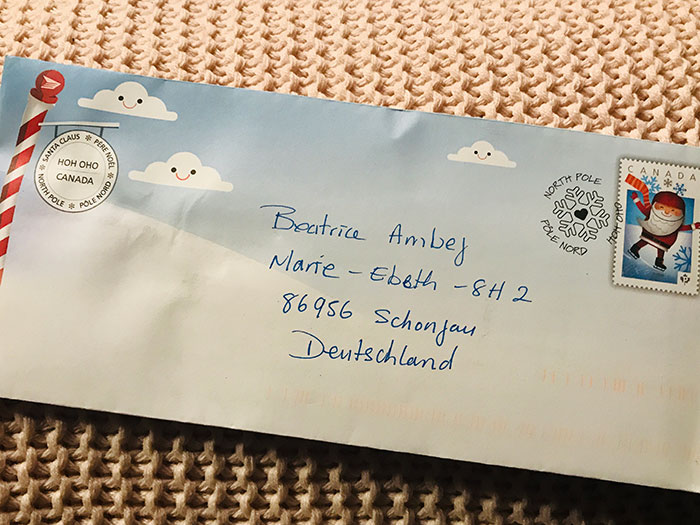 SANTA CLAUS * PÈRE NOËL
HOH OHO
CANADA
NORTH POLE * PÔLE NORD
NORTH POLE
PÔLE NORD
HOH OHO
CANADA
P
Beatrice Ambej
Marie - Ebeth - 8H 2
86956 Schongau
Deutschland